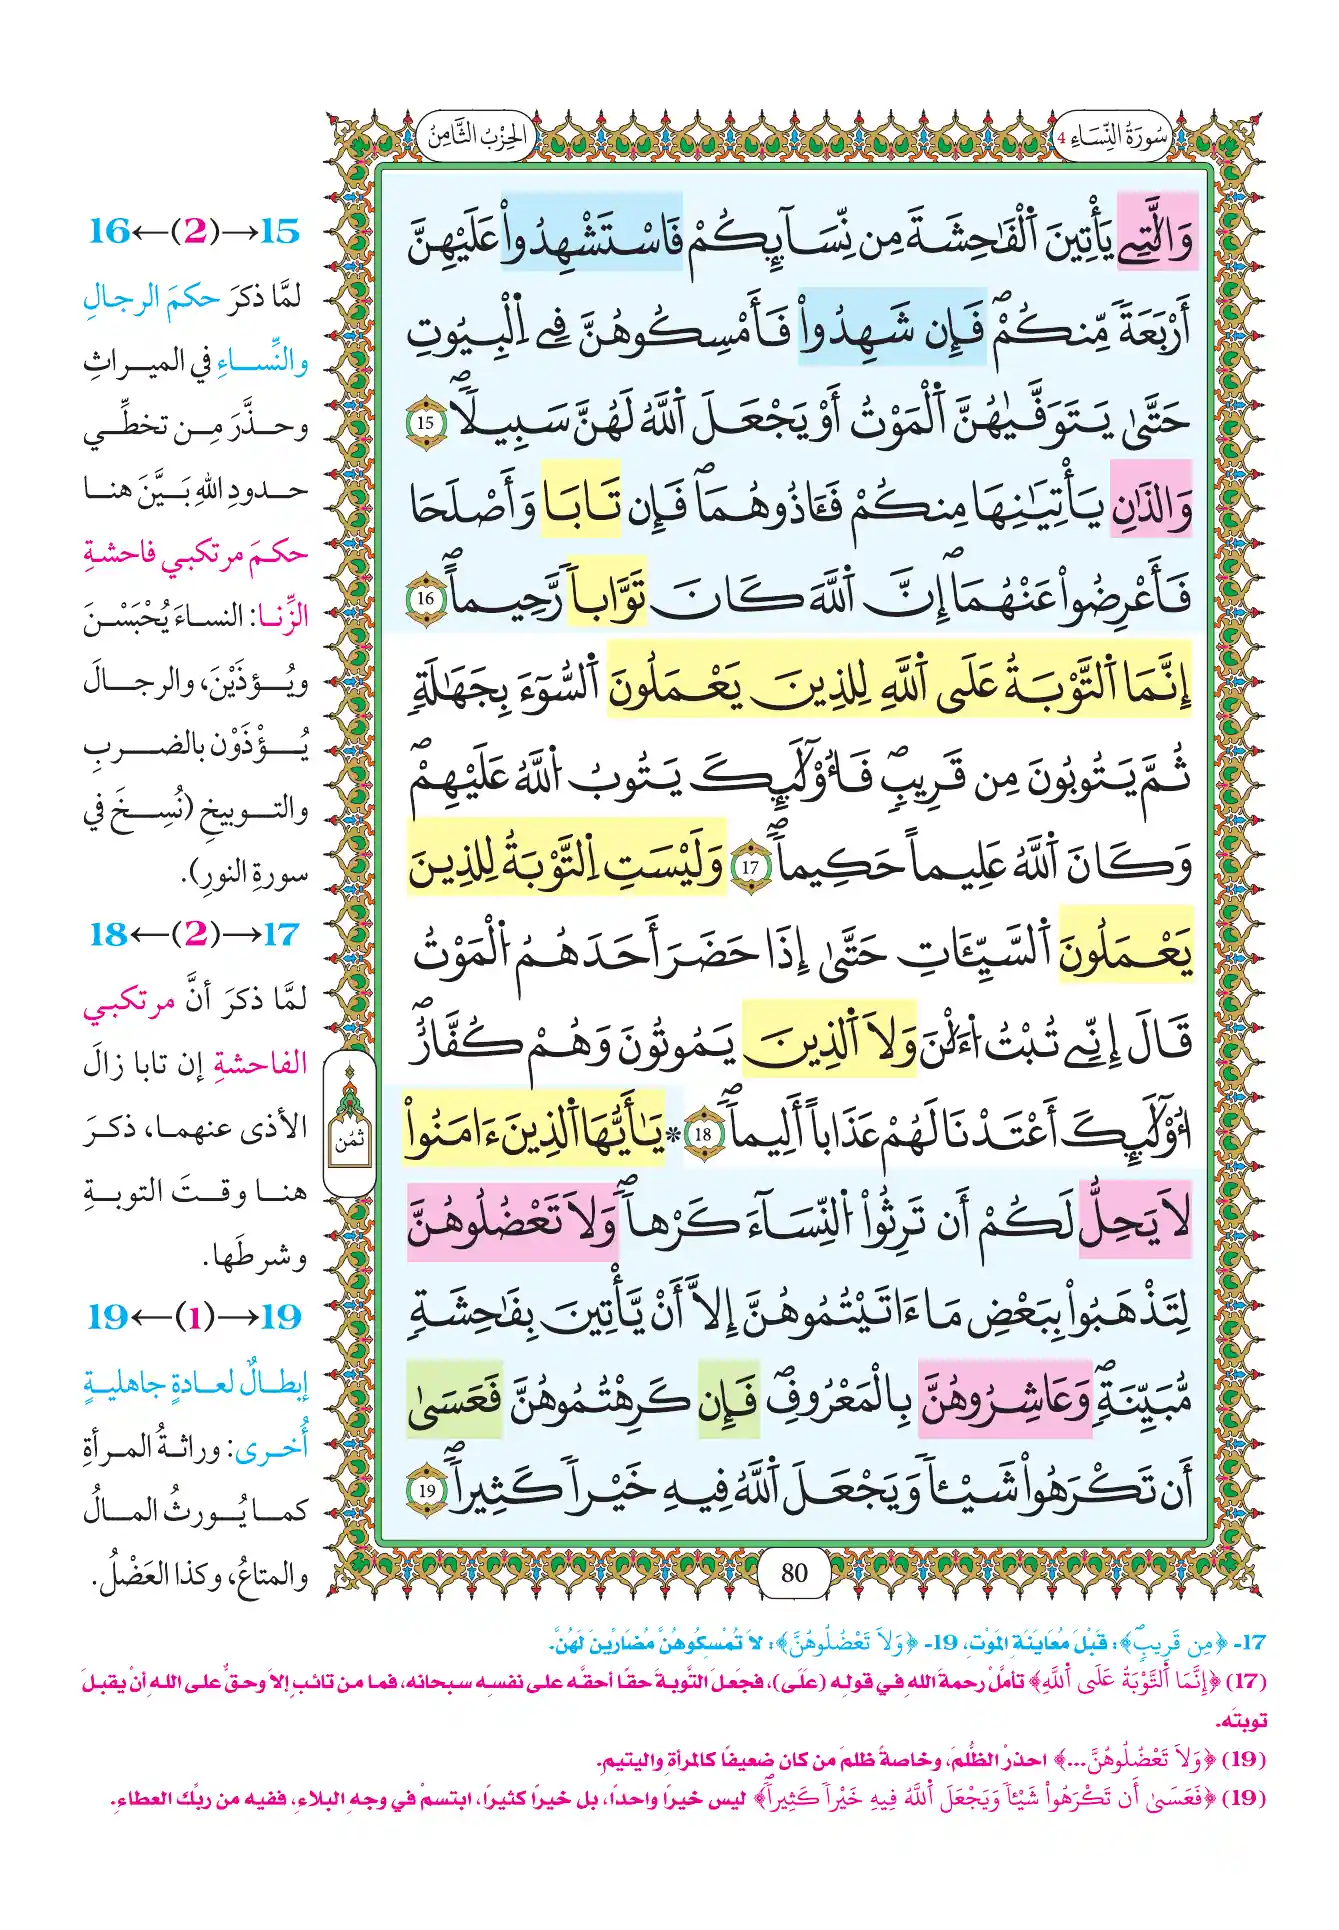 سُورَةُ النِّسَاءِ 4
الحِزْبُ الثَّامِنُ
وَالَّٰتِے يَأْتِينَ اَ۬لْفَٰحِشَةَ مِن نِّسَآئِكُمْ فَاسْتَشْهِدُواْ عَلَيْهِنَّ
أَرْبَعَةٗ مِّنكُمْۖ فَإِن شَهِدُواْ فَأَمْسِكُوهُنَّ فِے اِ۬لْبِيُوتِ
حَتَّىٰ يَتَوَفَّيٰهُنَّ اَ۬لْمَوْتُ أَوْ يَجْعَلَ اَ۬للَّهُ لَهُنَّ سَبِيلاٗۖ 15
وَالذَٰنِ يَأْتِيَٰنِهَا مِنكُمْ فَـَٔاذُوهُمَاۖ فَإِن تَابَا وَأَصْلَحَا
فَأَعْرِضُواْ عَنْهُمَاۖ إِنَّ اَ۬للَّهَ كَانَ تَوَّاباٗ رَّحِيماًۖ 16
إِنَّمَا اَ۬لتَّوْبَةُ عَلَي اَ۬للَّهِ لِلذِينَ يَعْمَلُونَ اَ۬لسُّوٓءَ بِجَهَٰلَةٖ
ثُمَّ يَتُوبُونَ مِن قَرِيبٖۖ فَأُوْلَٰٓئِكَ يَتُوبُ اُ۬للَّهُ عَلَيْهِمْۖ
وَكَانَ اَ۬للَّهُ عَلِيماً حَكِيماٗۖ 17 وَلَيْسَتِ اِ۬لتَّوْبَةُ لِلذِينَ
يَعْمَلُونَ اَ۬لسَّيِّـَٔاتِ حَتَّىٰ إِذَا حَضَرَ أَحَدَهُمُ اُ۬لْمَوْتُ
قَالَ إِنِّے تُبْتُ اُ۬لَٰٔنَ وَلَا اَ۬لذِينَ يَمُوتُونَ وَهُمْ كُفَّارٌۖ
اُوْلَٰٓئِكَ أَعْتَدْنَا لَهُمْ عَذَاباً أَلِيماٗۖ 18 * يَٰٓأَيُّهَا اَ۬لذِينَ ءَامَنُواْ
لَا يَحِلُّ لَكُمْ أَن تَرِثُواْ اُ۬لنِّسَآءَ كَرْهاٗۖ وَلَا تَعْضُلُوهُنَّ
لِتَذْهَبُواْ بِبَعْضِ مَا ءَاتَيْتُمُوهُنَّ إِلَّا أَنْ يَّأْتِينَ بِفَٰحِشَةٖ
مُّبَيِّنَةٖۖ وَعَاشِرُوهُنَّ بِالْمَعْرُوفِۖ فَإِن كَرِهْتُمُوهُنَّ فَعَسَىٰ
أَن تَكْرَهُواْ شَيْـٔاٗ وَيَجْعَلَ اَ۬للَّهُ فِيهِ خَيْراٗ كَثِيراٗۖ 19
80
ثُمُن
15→(2)←16
لمَّا ذكرَ حكمَ الرجالِ
والنِّساءِ في الميراثِ
وحذَّرَ مِن تخطِّي
حدودِ اللهِ بَيَّنَ هنا
حكمَ مرتكبي فاحشةِ
الزِّنا: النساءَ يُحْبَسْنَ
ويُؤذَيْنَ، والرجالَ
يُؤْذَوْن بالضربِ
والتوبيخِ (نُسِخَ في
سورةِ النورِ).
17→(2)←18
لمَّا ذكرَ أنَّ مرتكبي
الفاحشةِ إن تابا زالَ
الأذى عنهما، ذكرَ
هنا وقتَ التوبةِ
وشرطَها.
19→(1)←19
إبطالٌ لعادةٍ جاهليةٍ
أُخرى: وراثةُ المرأةِ
كما يُورثُ المالُ
والمتاعُ، وكذا العَضْلُ.
17- ﴿مِن قَرِيبٖۖ﴾: قَبْلَ مُعَايَنَةِ المَوْتِ، 19- ﴿وَلَا تَعْضُلُوهُنَّ﴾: لَا تُمْسِكُوهُنَّ مُضَارِّينَ لَهُنَّ.
(17) ﴿إِنَّمَا اَ۬لتَّوْبَةُ عَلَي اَ۬للَّهِ﴾ تأملْ رحمةَ اللهِ في قولِه (عَلَى)، فجَعلَ التَّوبةَ حقًا أحقَّه على نفسِه سبحانه، فما من تائبٍ إلا وحقٌ على اللهِ أنْ يقبلَ
توبتَه.
(19) ﴿وَلَا تَعْضُلُوهُنَّ...﴾ احذرْ الظُّلمَ، وخاصةً ظلمَ من كان ضعيفًا كالمرأةِ واليتيمِ.
(19) ﴿فَعَسَىٰ أَن تَكْرَهُواْ شَيْـٔاٗ وَيَجْعَلَ اَ۬للَّهُ فِيهِ خَيْراٗ كَثِيراٗۖ﴾ ليس خيرًا واحدًا، بل خيرًا كثيرًا، ابتسمْ في وجهِ البلاءِ، ففيه من ربِّك العطاءِ.